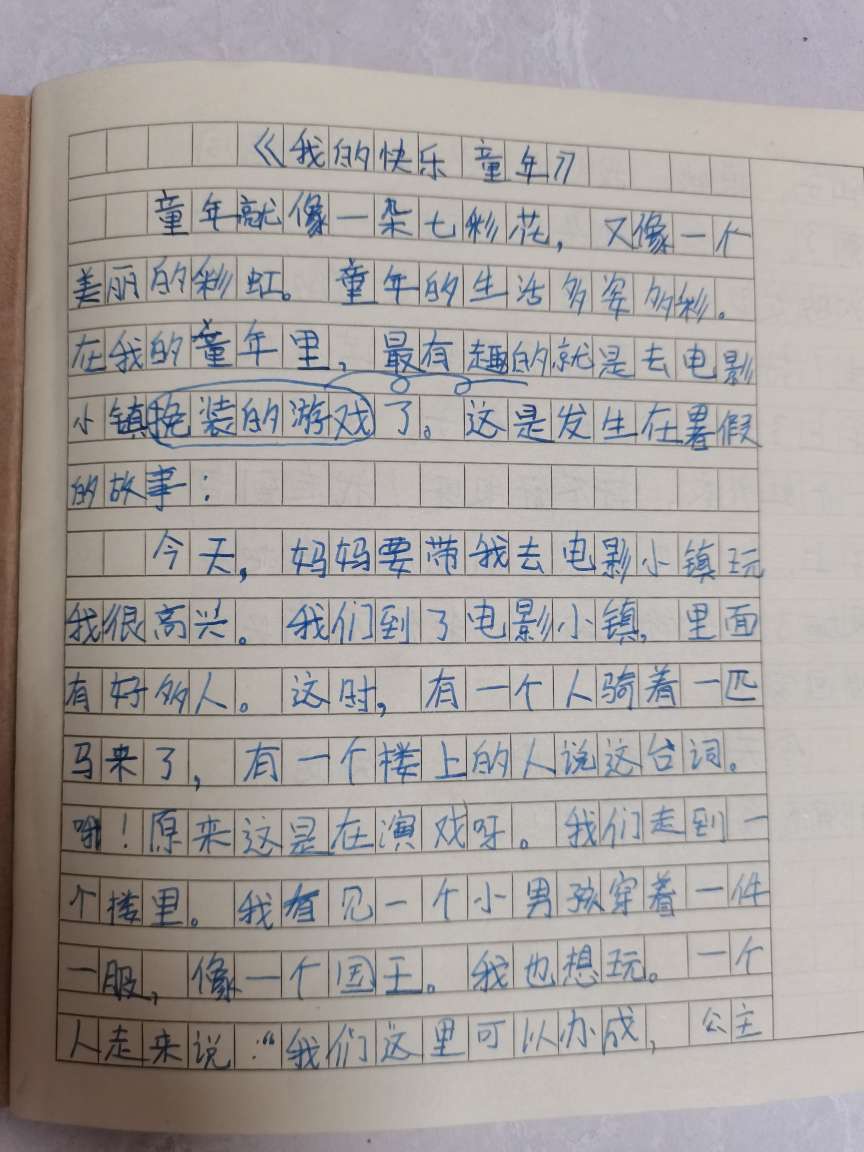 《我的快乐童年》
童年就像一朵七彩花，又像一个
美丽的彩虹。童年的生活多姿多彩。
在我的童年里，最有趣的就是去电影
小镇挽装的游戏了。这是发生在暑假
的故事：
今天，妈妈要带我去电影小镇玩
我很高兴。我们到了电影小镇，里面
有好多人。这时，有一个人骑着一匹
马来了，有一个楼上的人说这台词。
哦！原来这是在演戏呀。我们走到一
个楼里。我看见一个小男孩穿着一件
一服，像一个国王。我也想玩。一个
人走来说：“我们这里可以办成，公主